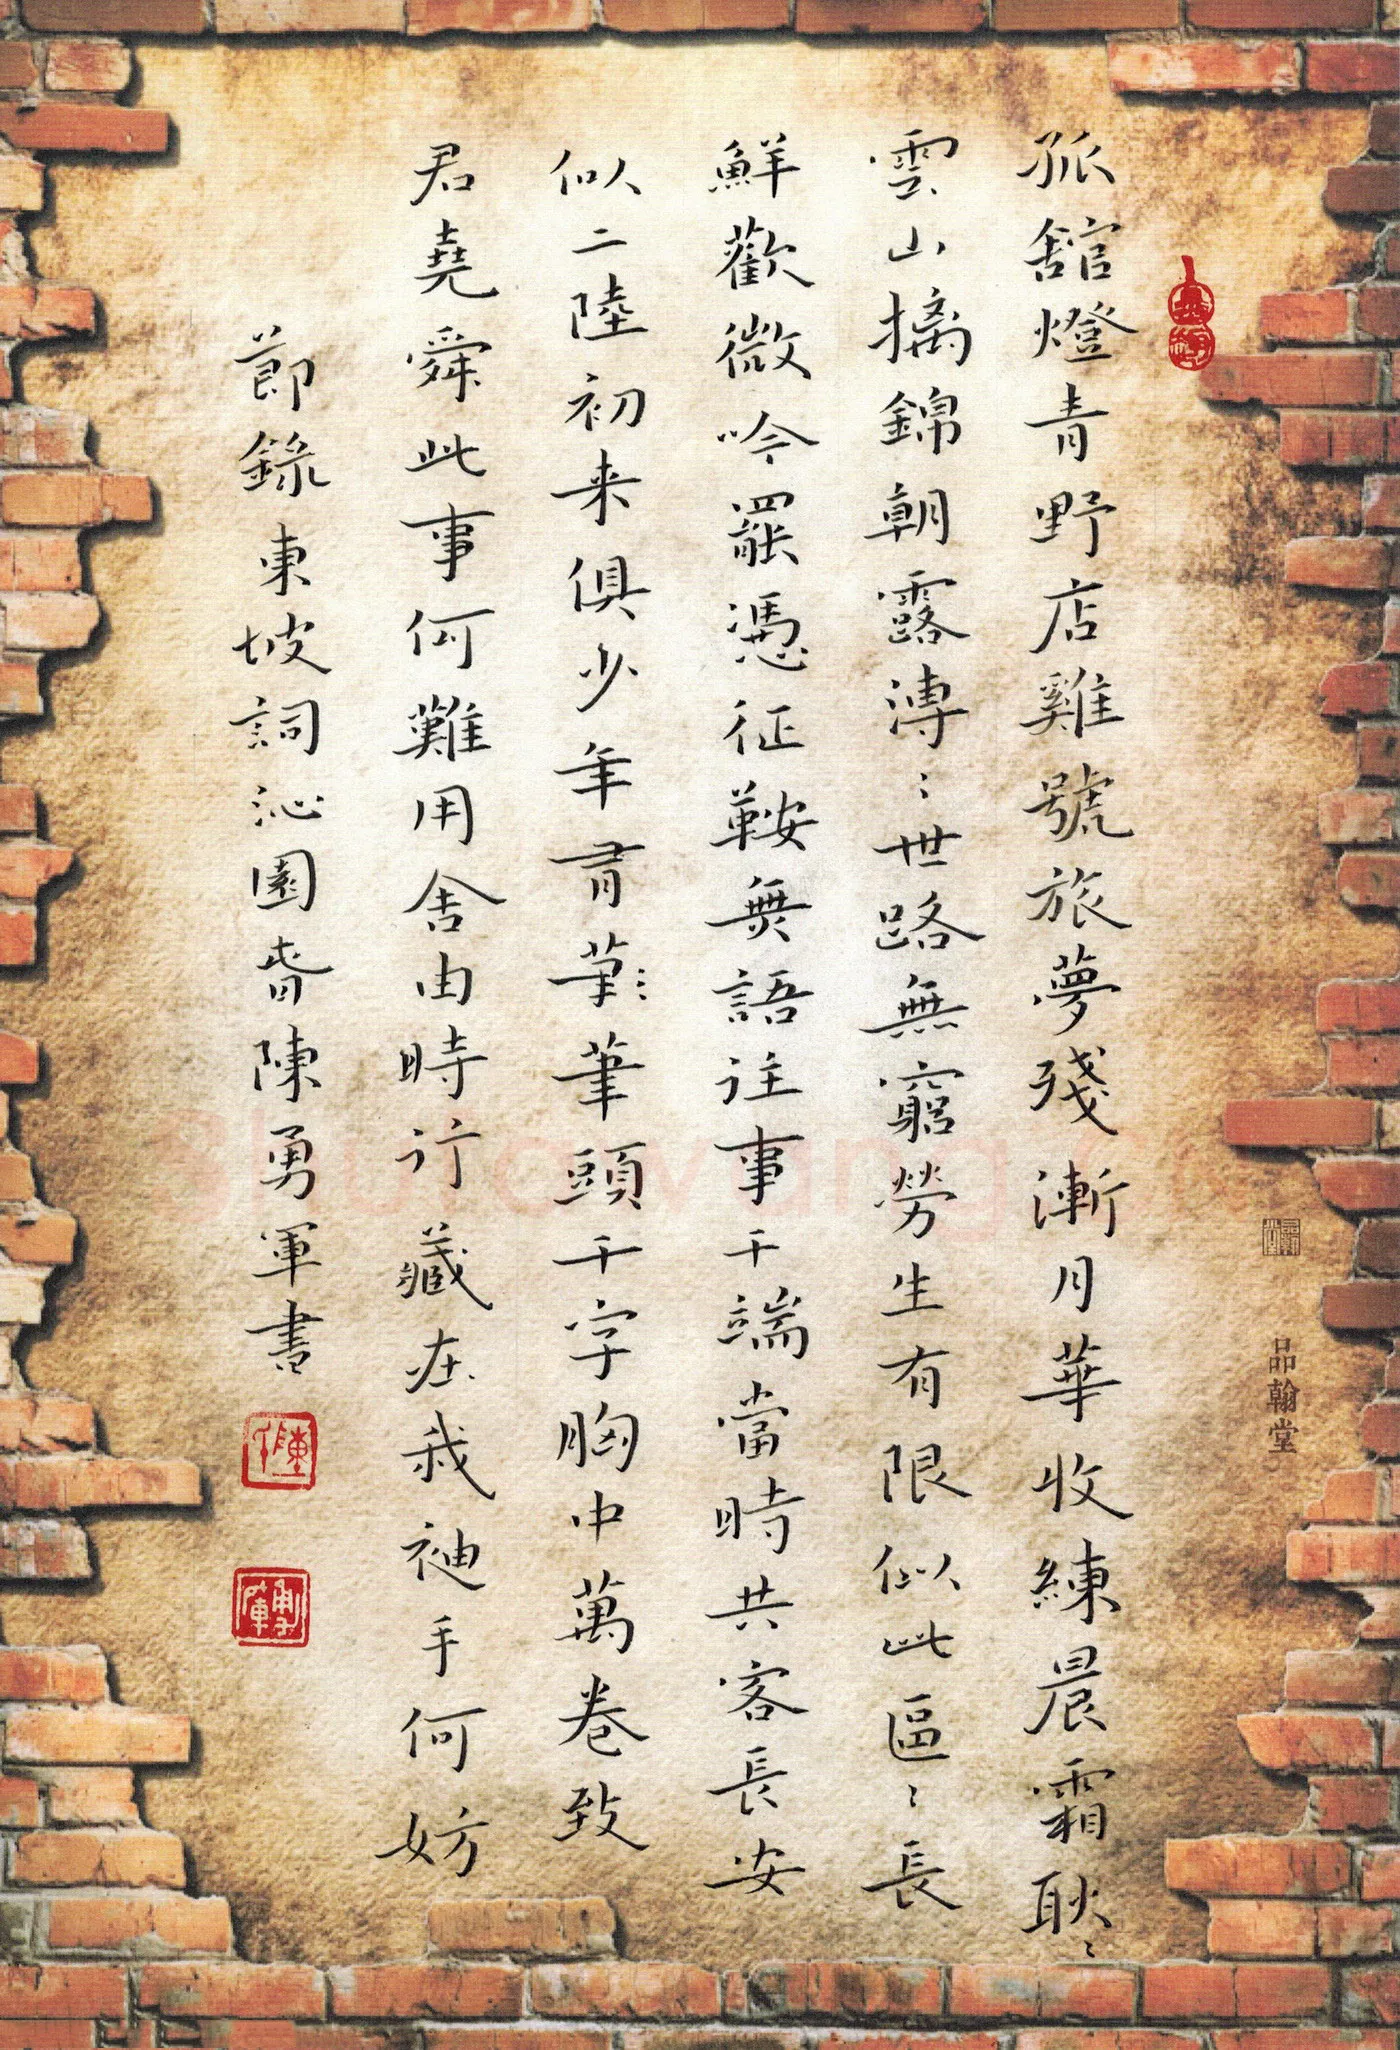 孤舘燈青野店雞號旅夢殘漸月華收練晨霜耿〻
雲山摛錦朝露漙〻世路無窮勞生有限似此區〻長
鮮歡微吟罷憑征鞍無語往事千端當時共客長安
似二陸初来俱少年有筆筆頭千字胸中萬卷致
君堯舜此事何難用舍由時行藏在我袖手何妨
節錄東坡詞沁園春陳勇軍書
品翰堂